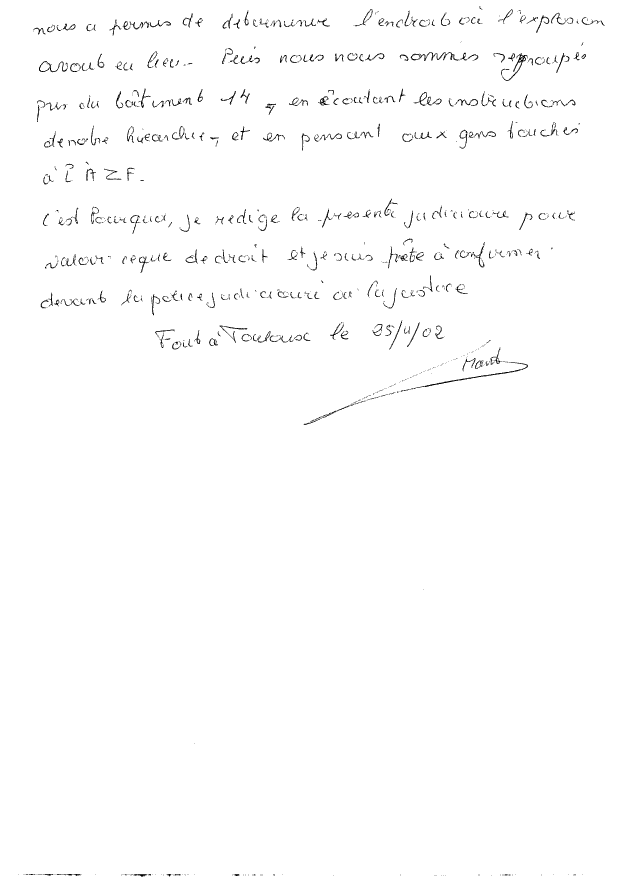 nous a permis de determiner l'endroit où l'explosion
avait eu lieu. Puis nous nous sommes regroupés
près du bâtiment 14, en écoutant les instructions
de notre hiérarchie, et en pensant aux gens touchés
à l'AZF.
C'est Pourquoi, je rédige la présente judiciaire pour
valoir ce que de droit et je suis prête à confirmer
devant la police judiciaire ou la justice
Fait à Toulouse le 25/11/02